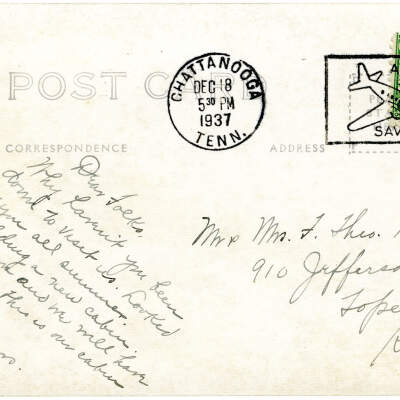 POST CARD
CHATTANOOGA
DEC 18
5 30 PM
1937
TENN.
A
SAV
CORRESPONDENCE
ADDRESS
Dear Folks,
Why haven't you been
down to visit us. Looked
you all summer.
a new cabin
and we will have
this is our cabin
Mr & Mrs. F. Theo.
910 Jefferso
Tope